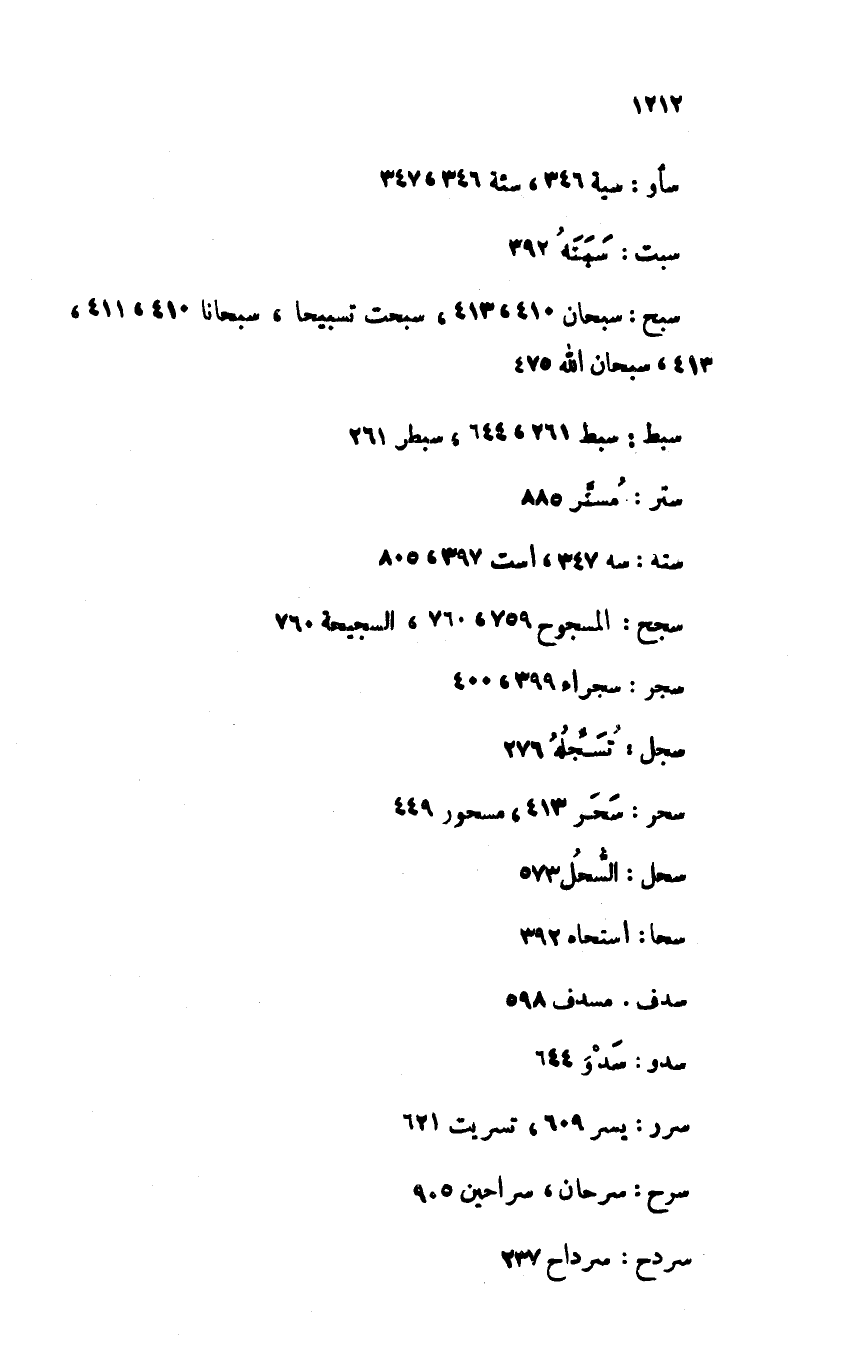 ١٢١٢
سأو : سية ٣٤٦ ، سئة ٣٤٦ ، ٣٤٧
سبت : ٣٩٢
سبح : سبحان ٤١٠ ، ٤١٣ ، سبحت تسبيحا ، سبحانا ٤١٠ ، ٤١١ ،
٤١٣ ، سبحان الله ٤٧٥
سبط : سبط ٢٦١ ، ٦٤٤ ، سبطر ٢٦١
ستر : مُستَّر ٨٨٥
سته : سه ٣٤٧ ، أست ٣٩٧ ، ٨٠٥
سجح : المسجوح ٧٥٩ ، ٧٦٠ ، السجيحة ٧٦٠
سجر : سجراء ٣٩٩ ، ٤٠٠
سجل : تُسَـجِّلُهُ ٢٧٦
سحر : سَحَـر ٤١٣ ، مسحور ٤٤٩
سحل : السُّحلُ ٥٧٣
سحا : أستحاه ٣٩٢
سدف . مسدف ٥٩٨
سدو : سَدْوَ ٦٤٤
سرر : يسر ٦٠٩ ، تسريت ٦٢١
سرح : سرحان ، سراحين ٩٠٥
سردح : سرداح ٢٣٧